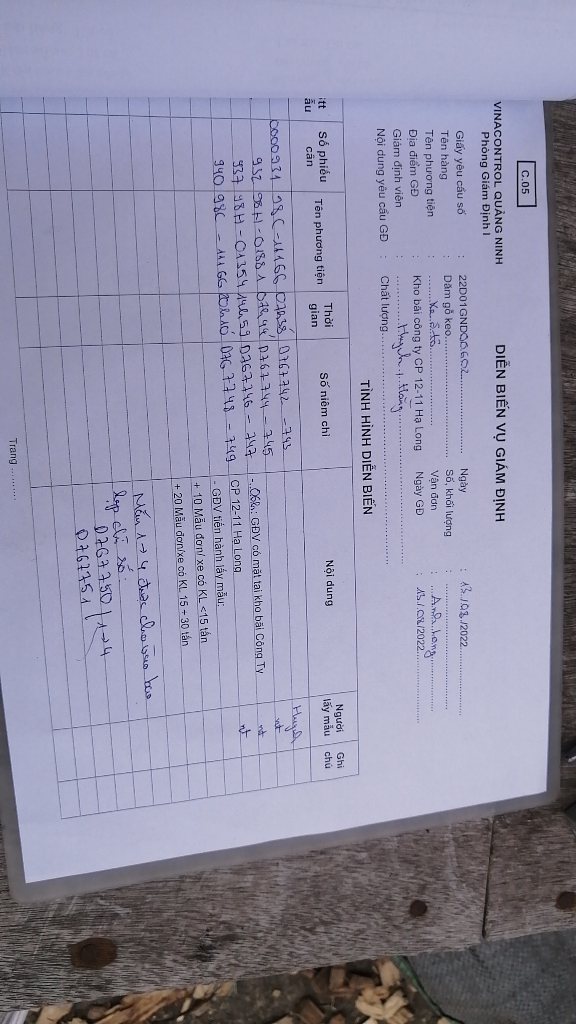 C.05
VINACONTROL QUẢNG NINH
Phòng Giám Định I
DIỄN BIẾN VỤ GIÁM ĐỊNH
Giấy yêu cầu số : 22D01GND00602 Ngày : 13/08/2022
Tên hàng : Dăm gỗ keo Số, khối lượng :
Tên phương tiện : Xe ô tô Vận đơn :
Địa điểm GĐ : Kho bãi công ty CP 12-11 Hạ Long Ngày GĐ : 13/08/2022
Giám định viên : Huynh, Hằng
Nội dung yêu cầu GĐ : Chất lượng
TÌNH HÌNH DIỄN BIẾN
Stt mẫu Số phiếu cân Tên phương tiện Thời gian Số niêm chì Nội dung Người lấy mẫu Ghi chú
0000931 98C-11166 07h38 0767742 - 743 Huynh
932 98H-01881 07h44 0767744 - 745 - GĐV có mặt tại kho bãi Công Ty nt
937 98H-01354 14h59 0767746 - 747 CP 12-11 Hạ Long nt
940 98C-11166 20h10 0767748 - 749 - GĐV tiến hành lấy mẫu: nt
+ 10 Mẫu đơn/ xe có KL <15 tấn
+ 20 Mẫu đơn/xe có KL 15 ÷ 30 tấn
Mẫu 1→4 được cho vào bao
kẹp chì số:
0767750 / 1→4
0767751
Trang